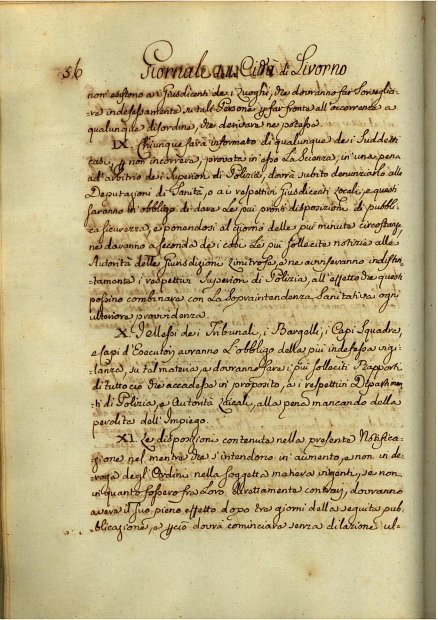 56 Giornale della Città di Livorno
non' esistono a i Giusdicenti de i Luoghi, che dovranno far sorveglia-
re indefessamente su tali Persone p far fronte all'occorrenze a
qualunque disordine, che derivare ne potesse.
IX. Chiunque sarà informato di qualunque de i suddetti
casi, p non incorrere, provata in esso La Scienza, in' una pena
ad' arbitrio de i Superiori di Polizia, dovrà subito denunziarlo alle
Deputazioni di Sanità, o a i respettivi Giusdicenti Locali, e questi
saranno in obbligo di dare Le più pronti disposizioni di pubbli-
ca sicurezza, e ponendosi al giorno delle più minute circostan-
ze daranno a seconda de i casi Le più sollecite notizie alle
Autorità delle Giurisdizioni Limitrofe, e ne avviseranno indistin-
tamente i respettivi Superiori di Polizia, all'effetto che questi
possino combinare con La Sopraintendenza Sanitativa ogni
ulteriore provvidenza.
X. I Messi de i Tribunali, i Bargelli, i Capi Squadre,
e Capi d'Esecutori avranno L'obbligo della più indefessa vigi-
lanza, su tal materia, e dovranno fare i più solleciti Rapporti
di tutto ciò che accadesse in proposito, a i respettivi Dipartimen-
ti di Polizia, e Autorità Locali, alla pena mancando della
perdita dell'Impiego.
XI. Le disposizioni contenute nella presente Notifica-
zione nel mentre che s'intendono in' aumento, e non in de-
roga degl'Ordini nella soggetta materia vigenti, se non
in quanto fossero fra Loro direttamente contrarj, dovranno
avere il suo pieno effetto dopo tre giorni della seguita pub-
blicazione, e p ciò dovrà cominciare senza dilazione ul-